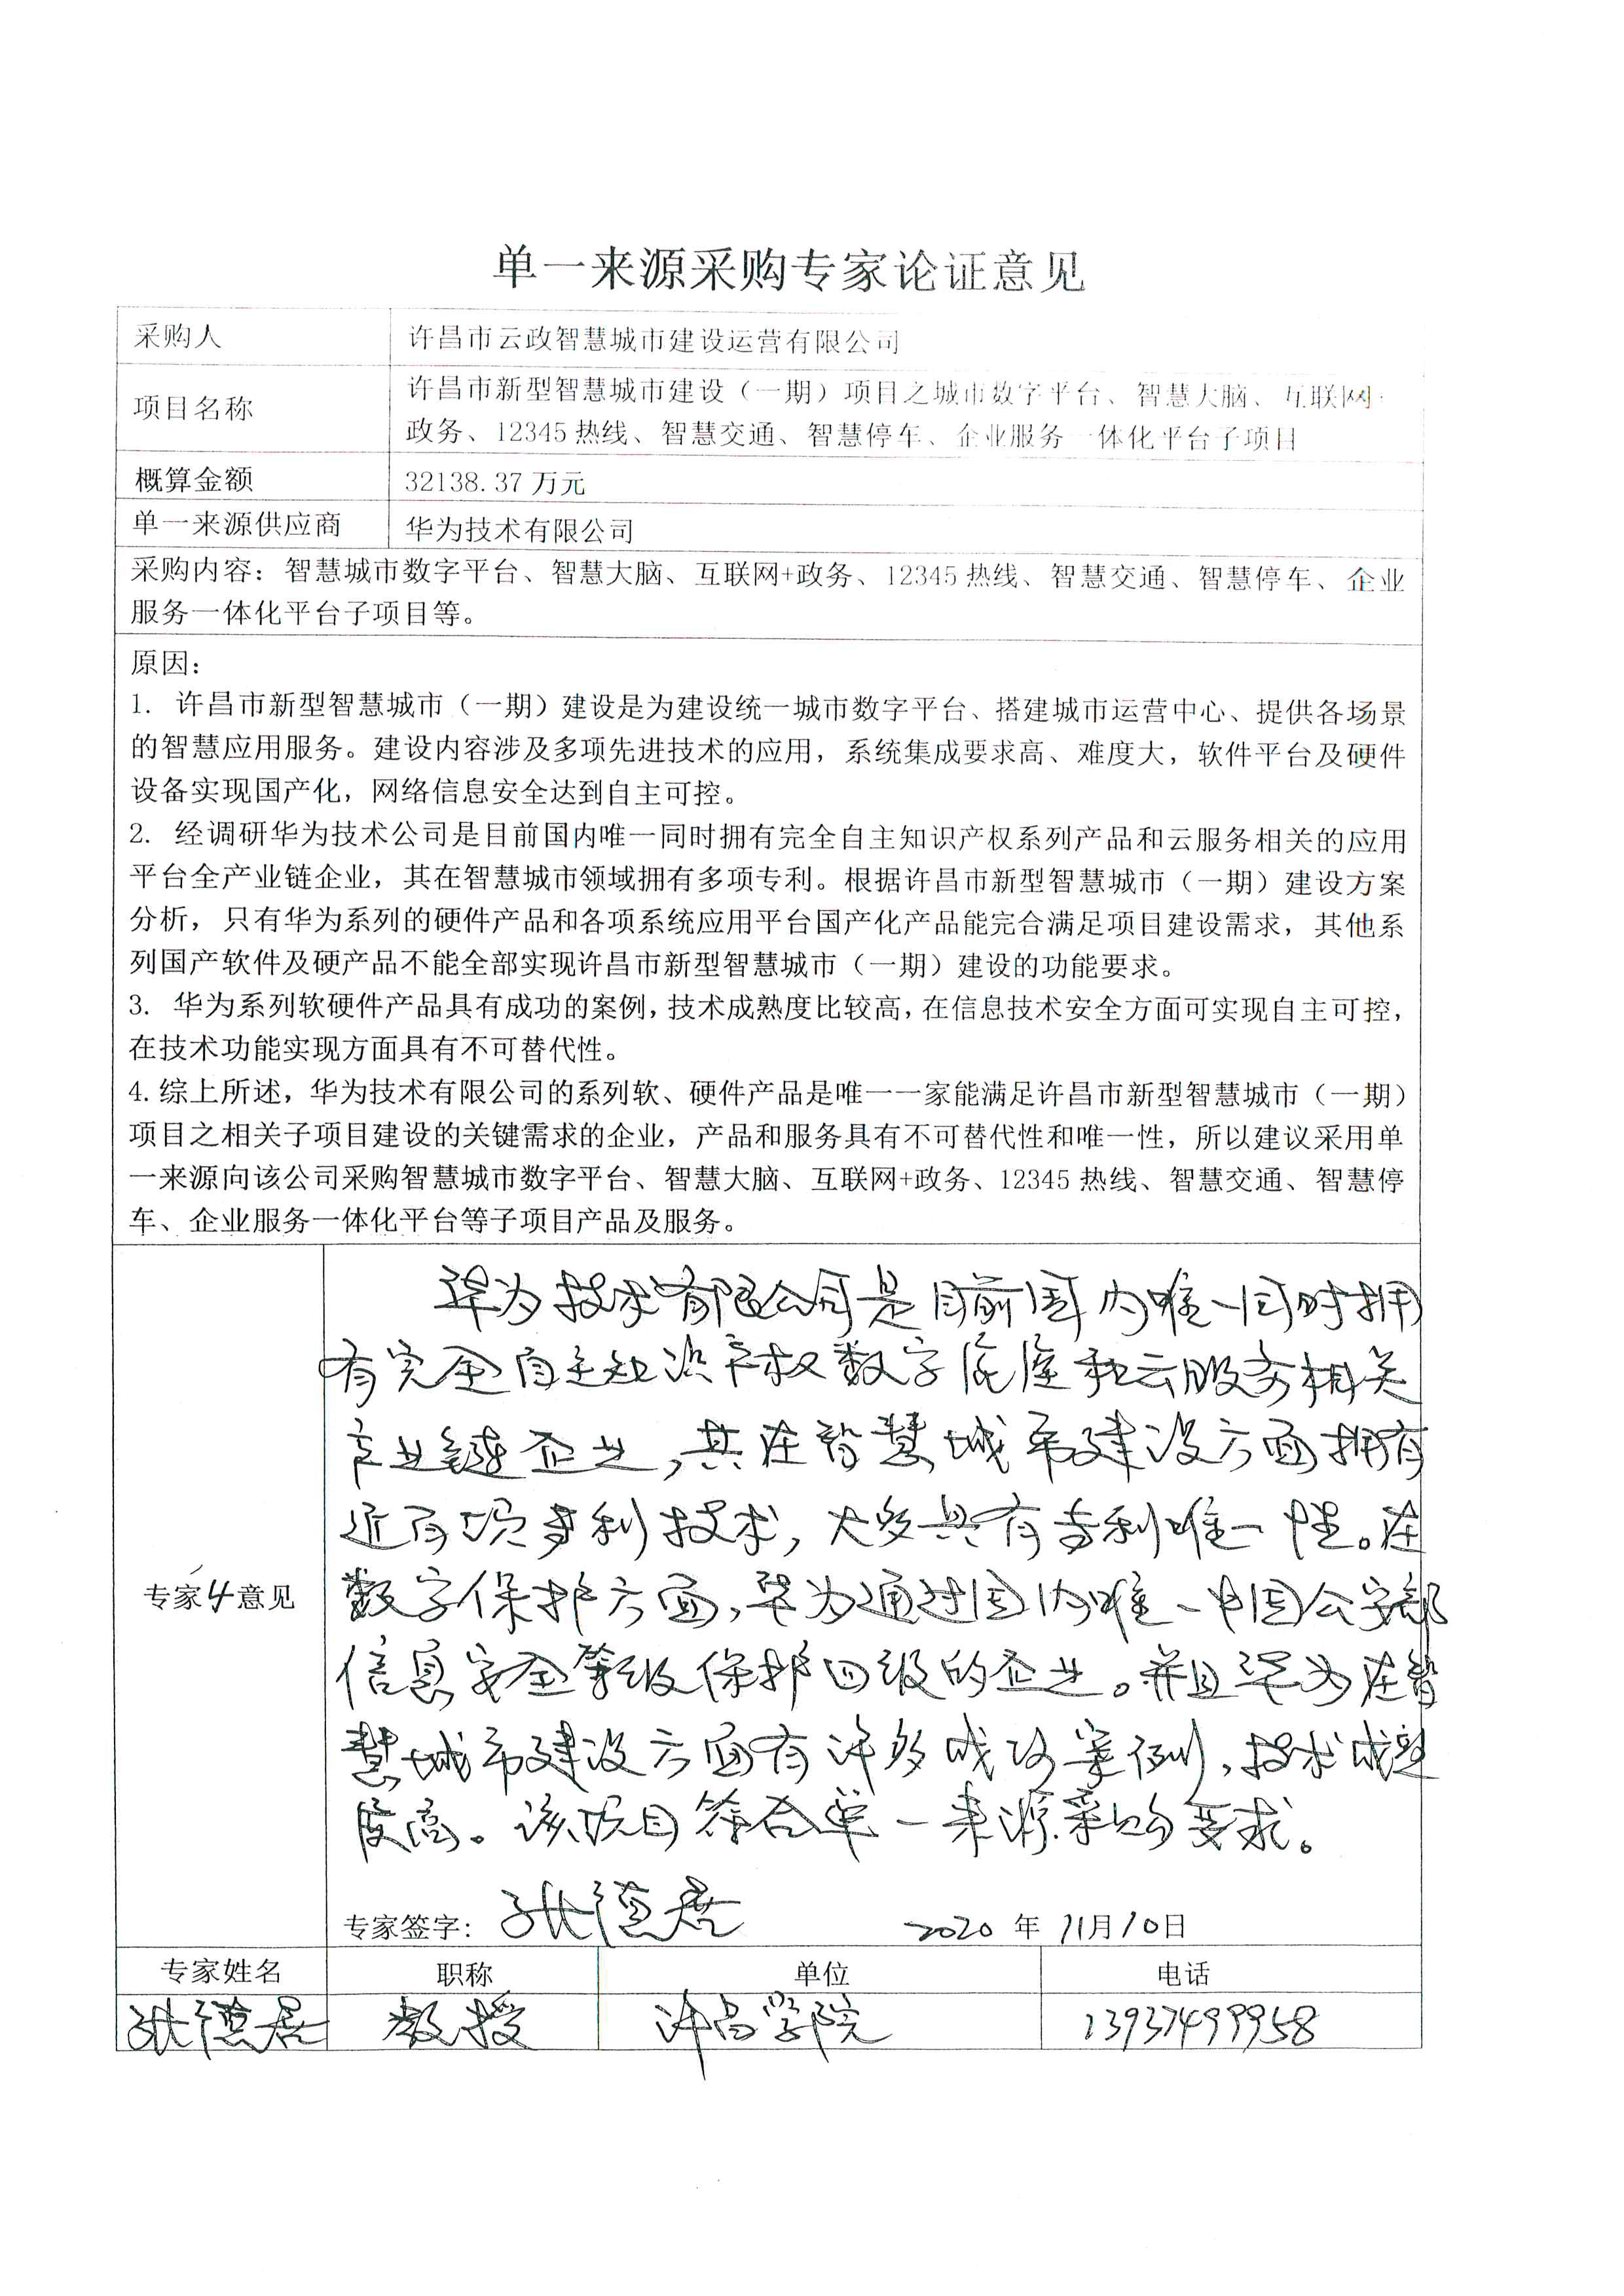 单一来源采购专家论证意见
采购人 许昌市云政智慧城市建设运营有限公司
项目名称 许昌市新型智慧城市建设（一期）项目之城市数字平台、智慧大脑、互联网+
政务、12345热线、智慧交通、智慧停车、企业服务一体化平台子项目
概算金额 32138.37万元
单一来源供应商 华为技术有限公司
采购内容：智慧城市数字平台、智慧大脑、互联网+政务、12345热线、智慧交通、智慧停车、企业
服务一体化平台子项目等。
原因：
1. 许昌市新型智慧城市（一期）建设是为建设统一城市数字平台、搭建城市运营中心、提供各场景
的智慧应用服务。建设内容涉及多项先进技术的应用，系统集成要求高、难度大，软件平台及硬件
设备实现国产化，网络信息安全达到自主可控。
2. 经调研华为技术公司是目前国内唯一同时拥有完全自主知识产权系列产品和云服务相关的应用
平台全产业链企业，其在智慧城市领域拥有多项专利。根据许昌市新型智慧城市（一期）建设方案
分析，只有华为系列的硬件产品和各项系统应用平台国产化产品能完合满足项目建设需求，其他系
列国产软件及硬产品不能全部实现许昌市新型智慧城市（一期）建设的功能要求。
3. 华为系列软硬件产品具有成功的案例，技术成熟度比较高，在信息技术安全方面可实现自主可控，
在技术功能实现方面具有不可替代性。
4.综上所述，华为技术有限公司的系列软、硬件产品是唯一一家能满足许昌市新型智慧城市（一期）
项目之相关子项目建设的关键需求的企业，产品和服务具有不可替代性和唯一性，所以建议采用单
一来源向该公司采购智慧城市数字平台、智慧大脑、互联网+政务、12345热线、智慧交通、智慧停
车、企业服务一体化平台等子项目产品及服务。
华为技术有限公司是目前国内唯一同时拥
有完全自主知识产权数字底座和云服务相关
产业链企业，其在智慧城市建设方面拥有
近百项专利技术，大多具有专利唯一性。在
专家4意见 数字保护方面，华为通过国内唯一中国公安部
信息安全等级保护四级的企业。并且华为在智
慧城市建设方面有许多成功案例，技术成熟
度高。该项目符合单一来源采购要求。
专家签字： 张德 2020年11月10日
专家姓名 职称 单位 电话
张德 教授 许昌学院 13937499958